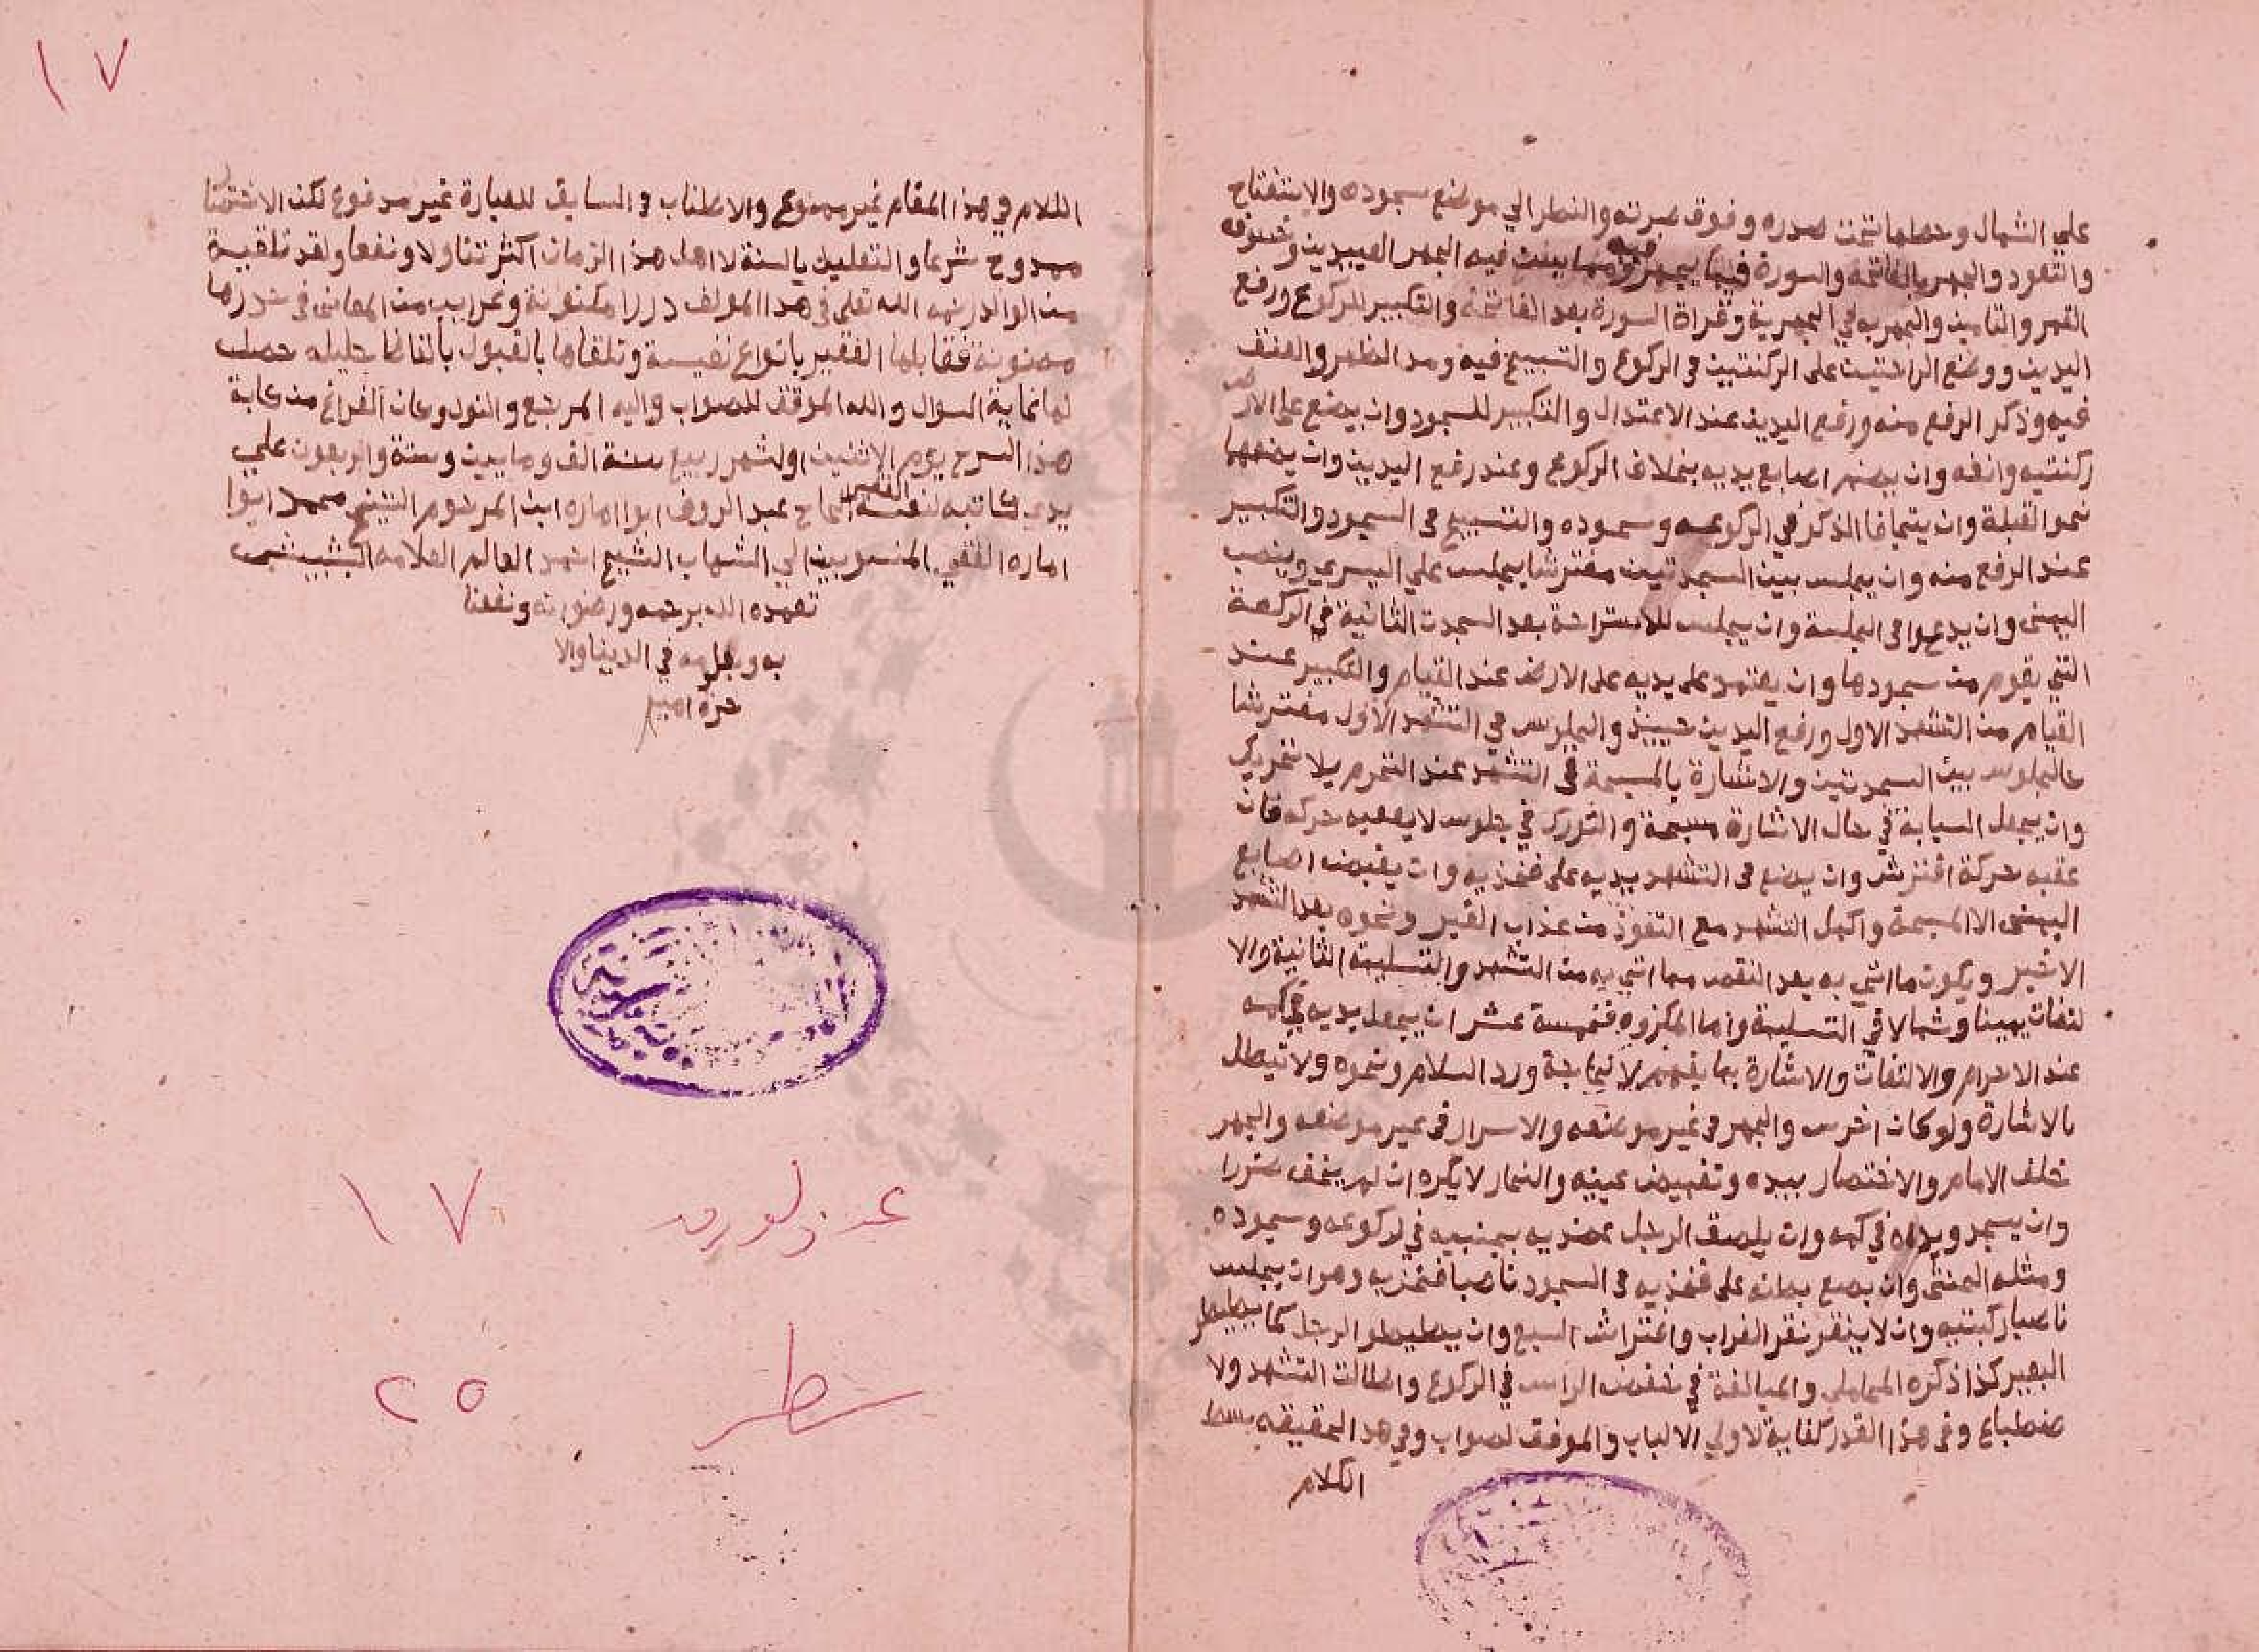 علي الشمال وحطهما تحت صدره وفوق سرته والنظر الي موضع سجوده والاستفتاح
والتعود والجهر بالفاتحه والسورة فيما يجهر فيه الجهر العيدين وخسوف
القمر والتامين والجهر به في الجهرية وقراة السورة بعد الفاتحة والتكبير للركوع ورفع
اليدين ووضع الراحتين على الركبتين في الركوع والتسبيح فيه ومد الظهر والعنق
فيه وذكر الرفع منه ورفع اليدين عند الاعتدال والتكبير للسجود وان يضع على الارض
ركبتيه وانفه وان يضم اصابع يديه بخلاف الركوع وعند رفع اليدين وان يضعهما
نحو القبلة وان يتجافا الذكر في الركوعه وسجوده والتسبيح في السجود والتكبير
عند الرفع منه وان يجلس بين السجدتين مفترشا يجلس علي اليسري وينصب
اليمنى وان يدعوا في الجلسة وان يجلس للاستراحة بعد السجدت الثانية في الركعة
التي يقوم من سجودها وان يعتمد على يديه على الارض عند القيام والتكبير عند
القيام من التشهد الاول ورفع اليدين حينيذ والجلوس في التشهد الاول مفترشا
كالجلوس بين السجدتين والاشارة بالمسبحة في التشهد عند التحرم بلا تحريك
وان يجعل السبابة في حال الاشارة مسبحة والتورك في جلوس لا يعقبه حركه فان
عقبه حركة افترش وان يضع في التشهد يديه على فخذيه وان يقبض اصابع
اليمنى الا المسبحة واكمل التشهد مع التعوذ من عذاب القبر ونحوه بعد التشهد
الاخير ويكون ما اتي به بعد النقص مما اتي به من التشهد والتسليمة الثانية والا
لتفات يمينا وشمالا في التسليمة واما المكروه فخمسة عشر ان يجعل يديه في كمه
عند الاحرام والالتفات والاشارة بما يفهم لا لحاجة ورد السلام ونحوه ولا تبطل
بالاشارة ولو كان اخرس والجهر في غير موضعه والاسرار في غير موضعه والجهر
خلف الامام والاختصار بيده وتغميض عينيه والنحار لا يكره ان لم يخف ضررا
وان يسجد ويداه في كمه وان يلصق الرجل عضديه بجنبيه في ركوعه وسجوده
ومثله الخنثى وان يضع بطنه على فخذيه في السجود ناصبا فخذيه وهو ان يجلس
ناصبا ركبتيه وان لا ينقر نقر الغراب وافتراش السبع وان الرجل كما
البعير كذا ذكره المحاملي والمبالغة في خفض الراس في الركوع واطالت التشهد ولا
ضطباع وفي هذا القدر كفاية لاولي الالباب والموفق لصواب وفي هد الحقيقه بسط
الكلام
١٧
الكلام في هذا المقام غير ممنوع والاطناب في السابق للعبارة غير مدفوع لكن الاختصا
ممدوح شرعا والتعليل بالسنة لا اهل هذا الزمان اكثر تناولا ونفعا ولقد تلقية
من الوالد رحمه الله تعلى في هدا المولف دررا مكنونة وغرايب من المعانى في صدرها
مصونة فقابلها الفقير بانواع نفيسة وتلقاها بالقبول بالفاظا جليله حصل
لها نهاية السوال والله الموفق للصواب واليه المرجع والنود وكان الفراغ من كتابة
هذا السرح يوم الاثنين اول شهر ربيع سنة الف ومايين وستة واربعون علي
يدي كاتبه لنفسه الفقير الحاج عبد الروف ابوا اماره ابن المرحوم الشيخ محمد ابوا
اماره الفقي المنسوبين الي الشهاب الشيخ احمد العالم العلامه البشبيشى
تغمده الله برحمه ورضوانه ونفعنا
به وبعلومه في الدينا والا
خره امين
عدد لورق ١٧
سطر ٢٥